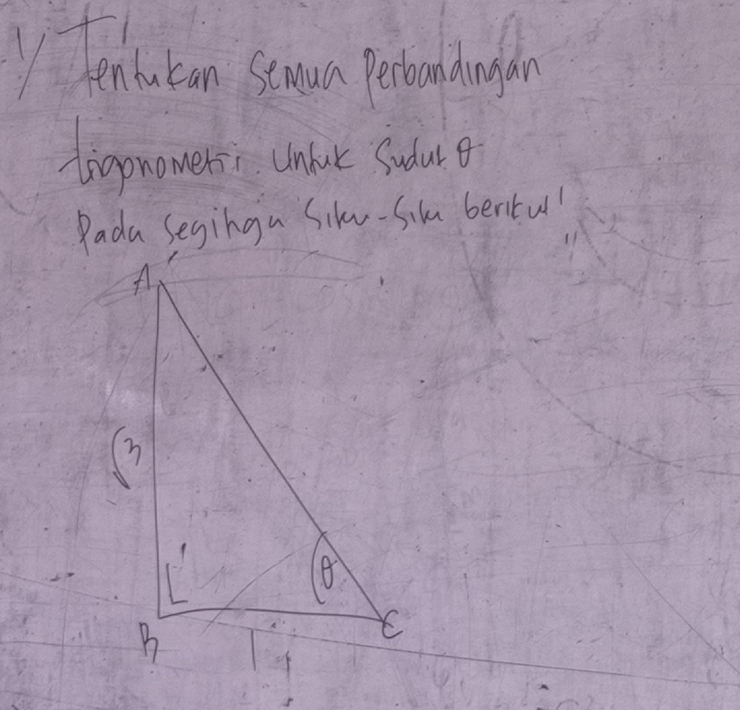 1/ Tentukan semua perbandingan
trigonometri untuk sudut θ
Pada segitiga siku-siku berikut!
A
√3
θ
B
C
1